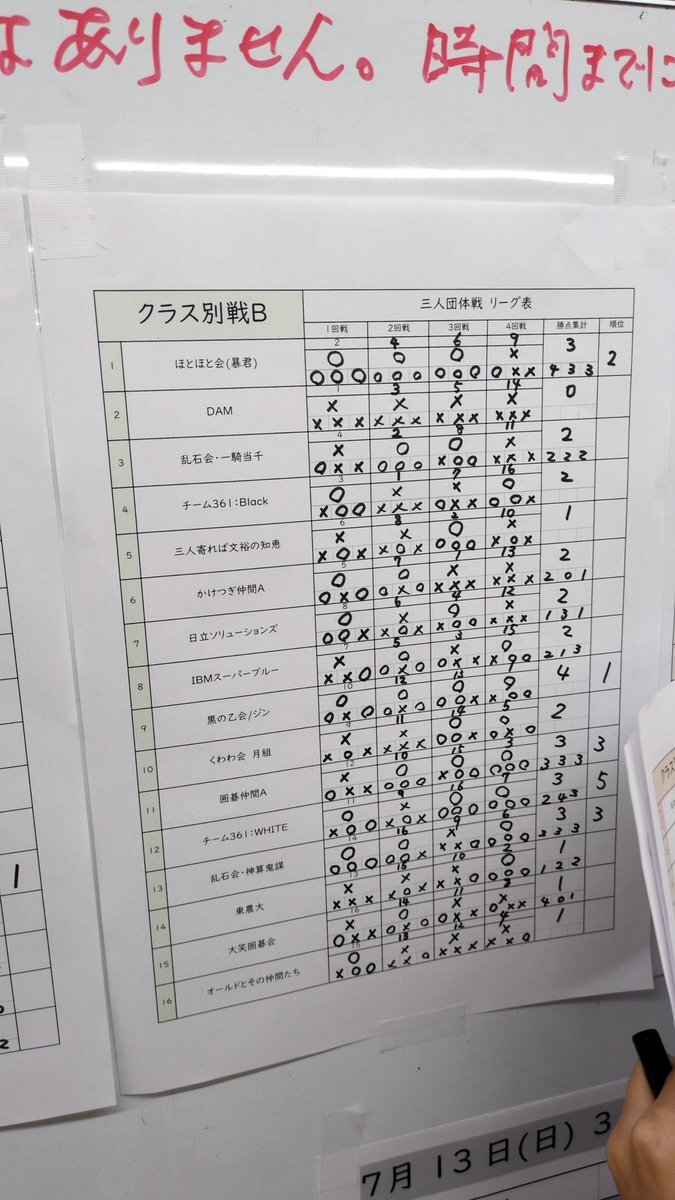 はありません。時間までに
クラス別戦B
三人団体戦 リーグ表
1回戦 2回戦 3回戦 4回戦 勝点集計 順位
2 4 6 9
1 ほとほと会(暴君) ○ ○ ○ × 3 2
○○○ ○○○ ○○○ ○×× 4 3 3
1 3 5 14
2 DAM × × × × 0
××× ××× ××× ×××
4 2 8 11
3 乱石会・一騎当千 × ○ ○ × 2
○×× ○○○ ×○○ ××× 2 2 2
3 1 7 16
4 チーム361:Black ○ × × ○ 2
×○○ ××× ○×× ○○×
6 8 2 10
5 三人寄れば文裕の知恵 × × ○ × 1
×○× ×○× ○○○ ×○×
5 7 1 13
6 かけつぎ仲間A ○ ○ × × 2
○×○ ○×○ ××× ××× 2 0 1
8 6 4 12
7 日立ソリューションズ ○ × ○ × 2
○○× ×○× ×○○ ××× 1 3 1
7 5 3 15
8 IBMスーパーブルー × ○ × ○ 2
2 1 3
10 12 13
9 黒の乙会/ジン ○ ○ ○ ○ 4 1
9 11 14 5
10 くわわ会 月組 × × ○ ○ 2
12 10 15 3
11 囲碁仲間A × ○ ○ ○ 3 3
○×× ○○○ ×○○ ○○○ 3 3 3
11 9 16 7
12 チーム361:WHITE ○ × ○ ○ 3 5
×○○ ×○× ○○○ ○○○ 2 4 3
14 16 9 6
13 乱石会・神算鬼謀 ○ ○ × ○ 3 3
3 3 3
13 15 10 2
14 東農大 × × × ○ 1
1 2 2
16 14 11 8
15 大笑囲碁会 × ○ × × 1
4 0 1
15 13 12 4
16 オールドとその仲間たち ○ × × × 1
×○○ ××○ ××× ××○
1
2
7月13日(日) 3